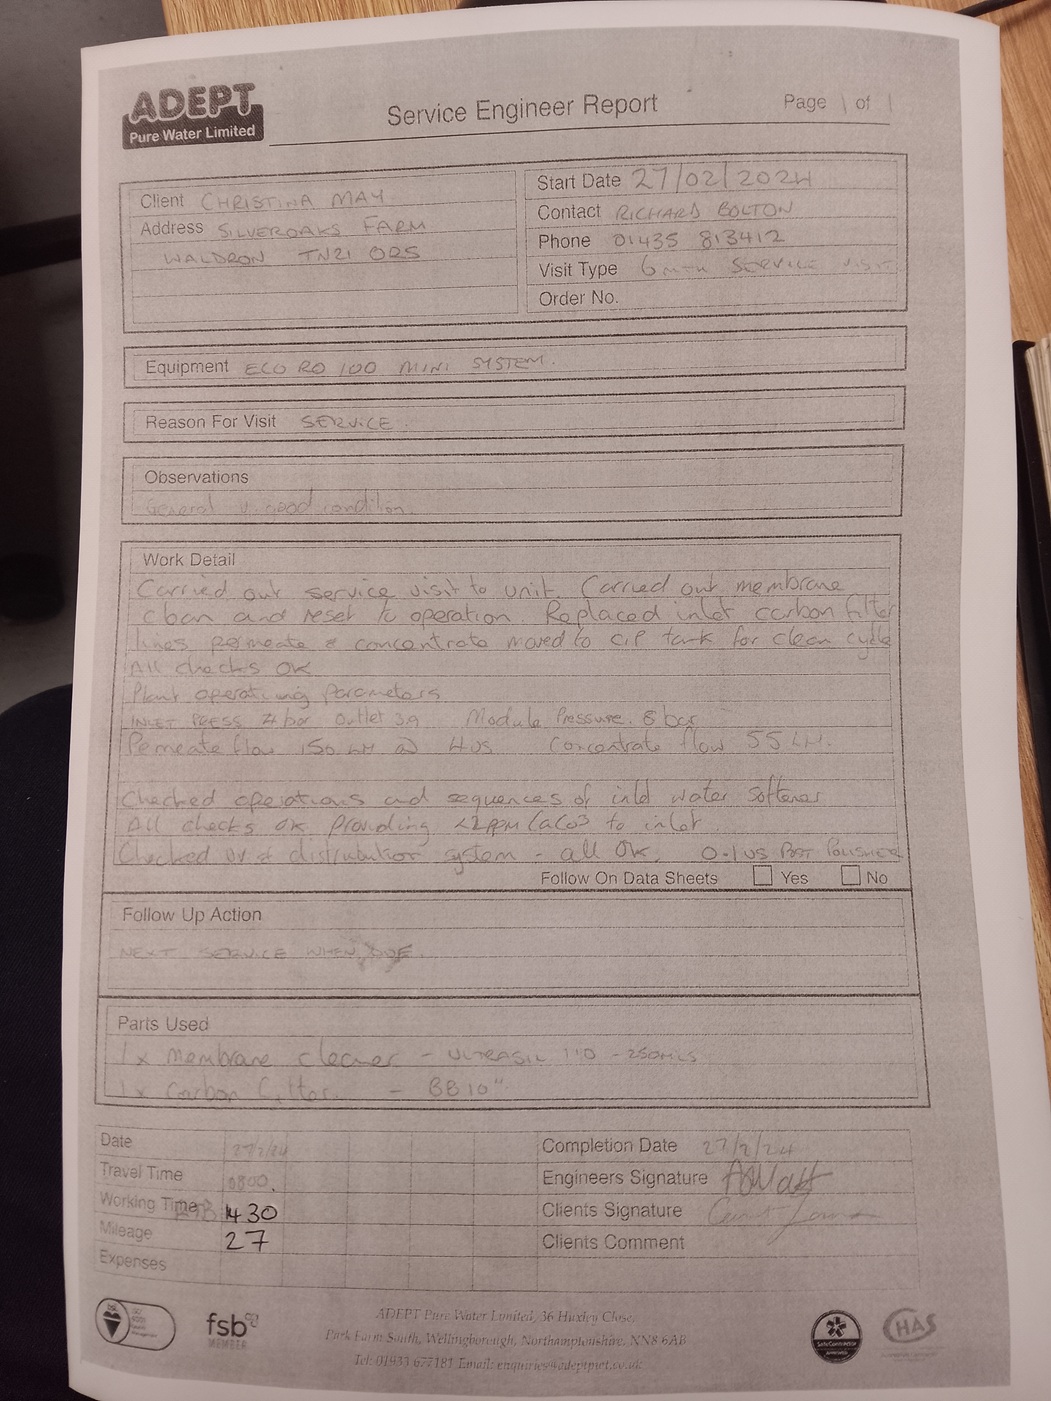 ADEPT
Pure Water Limited
Service Engineer Report
Page 1 of 1
Client CHRISTINA MAY
Address SILVEROAKS FARM
WALDRON TN21 0RS
Start Date 27/02/2024
Contact RICHARD BOLTON
Phone 01435 813412
Visit Type 6 MTH SERVICE VISIT
Order No.
Equipment ECO RO 100 MINI SYSTEM.
Reason For Visit SERVICE.
Observations
General v. good condition.
Work Detail
Carried out service visit to unit. Carried out membrane
clean and reset to operation. Replaced inlet carbon filter
lines permeate & concentrate moved to CIP tank for clean cycle
All checks OK
Plant operating parameters
INLET PRESS 4 bar outlet 3.9 Module Pressure. 8 bar
Permeate flow 150 LH @ 4us Concentrate flow 55 LH.
Checked operations and sequences of inlet water softener
All checks ok providing <2ppm CaCo3 to inlet.
Checked distribution system - all OK. 0-1us POST POLISHER
Follow On Data Sheets Yes No
Follow Up Action
NEXT SERVICE WHEN DUE.
Parts Used
1 x Membrane cleaner - ULTRASIL 110 - 250MLS
1 x Carbon filter. - BB10"
Date 27/2/24
Travel Time 0800.
Working Time 1430
Mileage 27
Expenses
Completion Date 27/2/24
Engineers Signature
Clients Signature
Clients Comment
fsb
MEMBER
ADEPT Pure Water Limited, 36 Huxley Close,
Park Farm South, Wellingborough, Northamptonshire, NN8 6AB
Tel: 01933 677181 Email: enquiries@adeptpwt.co.uk
SafeContractor
CHAS